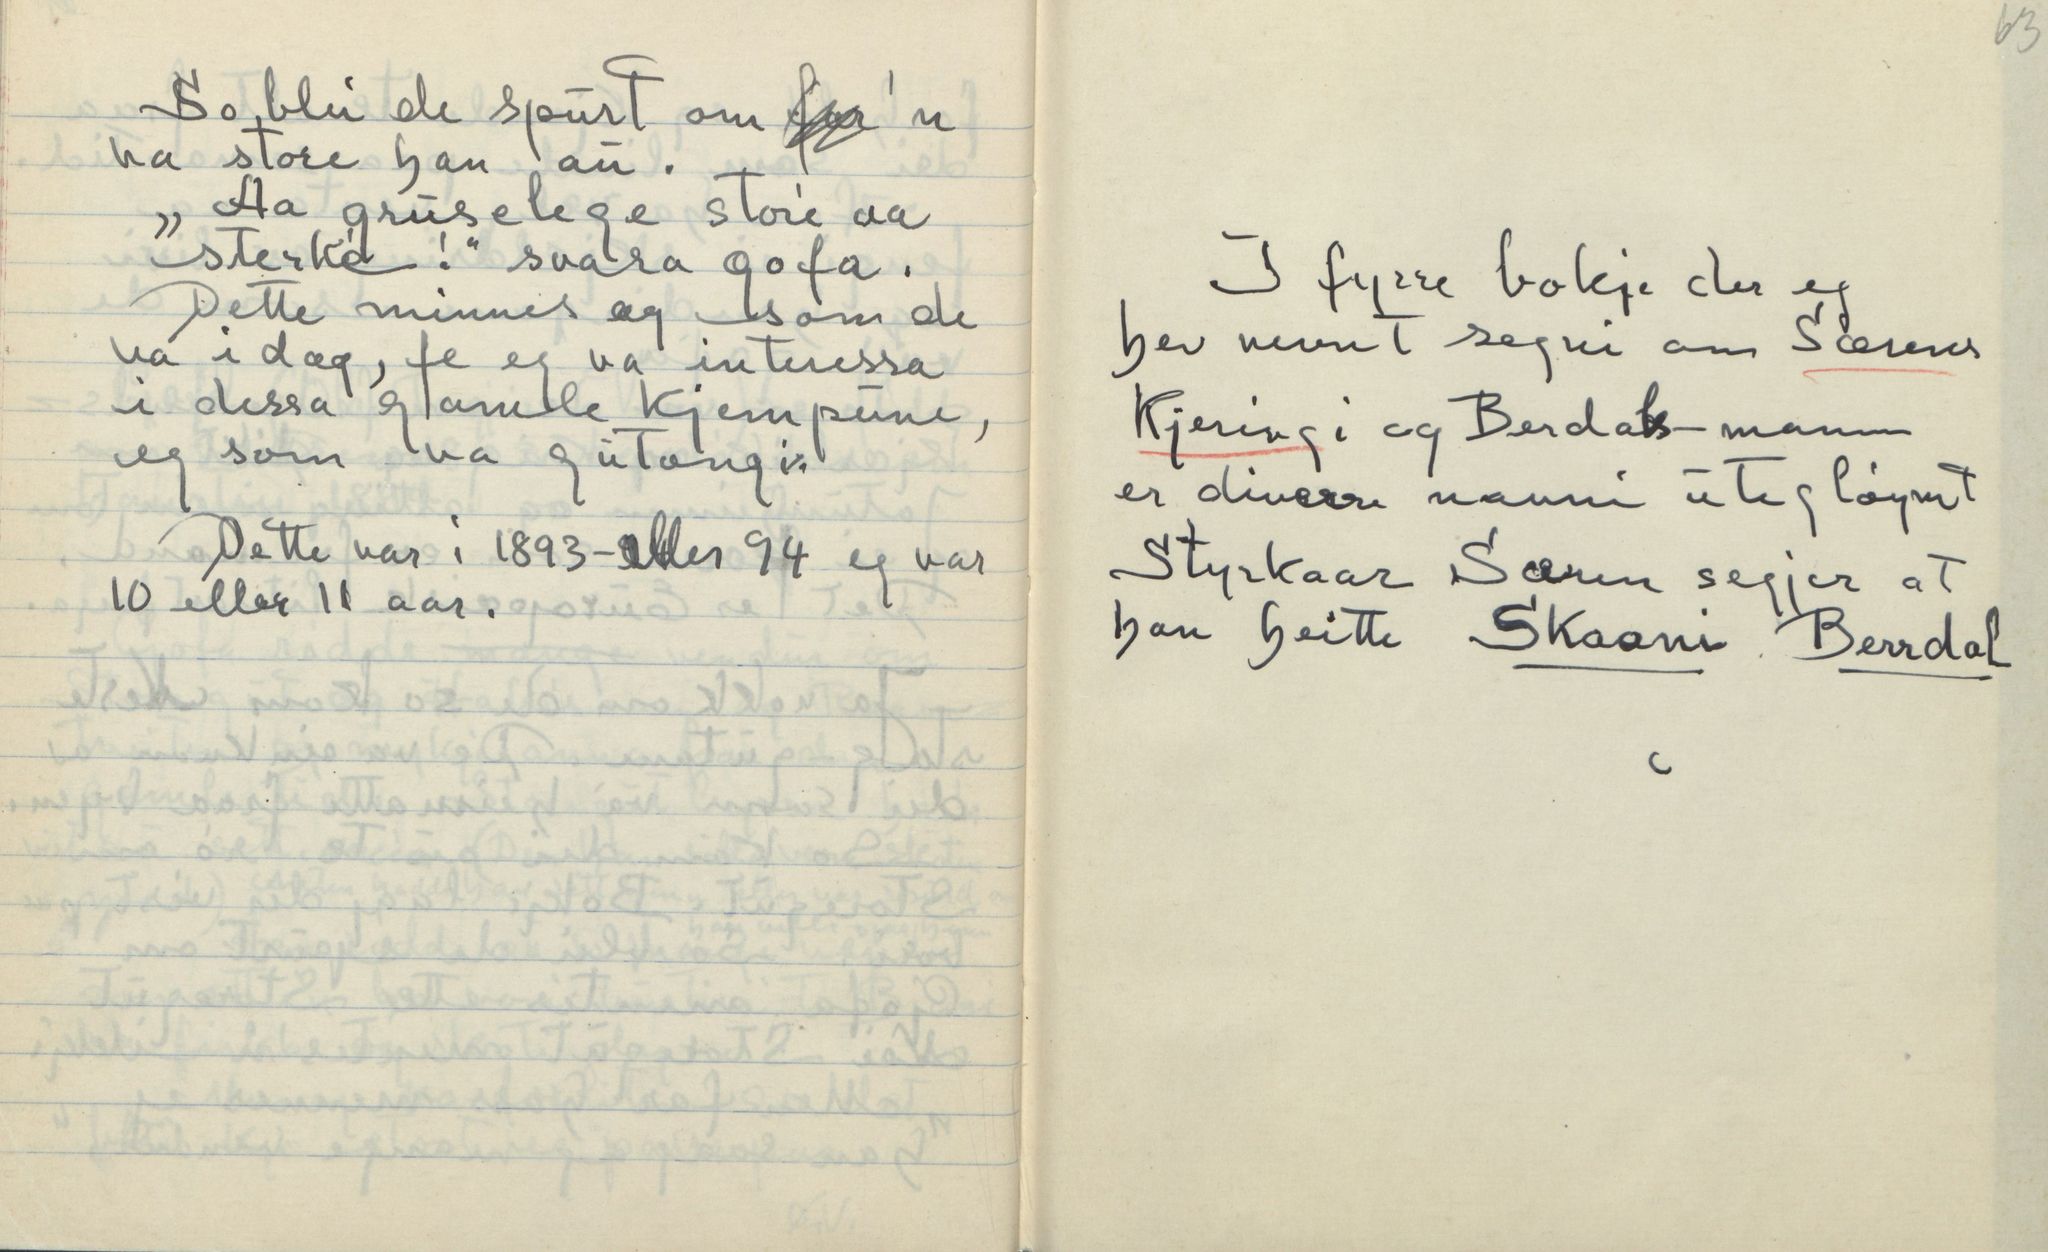 So blei de spurt om 'n
va store han au.
„Aa gruselege store aa
sterke!“ svara gofa.
Dette minnes eg som de
va i dag, fe eg va interessa
i dessa gamle kjempune,
eg som va gutongi.
Dette var i 1893-eller 94 eg var
10 eller 11 aar.
63
I fyrre bokje der eg
hev nevnt segni om Sørens
Kjeringi og Berdals-mann
er diverre namni utegløymt
Styrkaar Søren segjer at
han heitte Skaani Berrdal